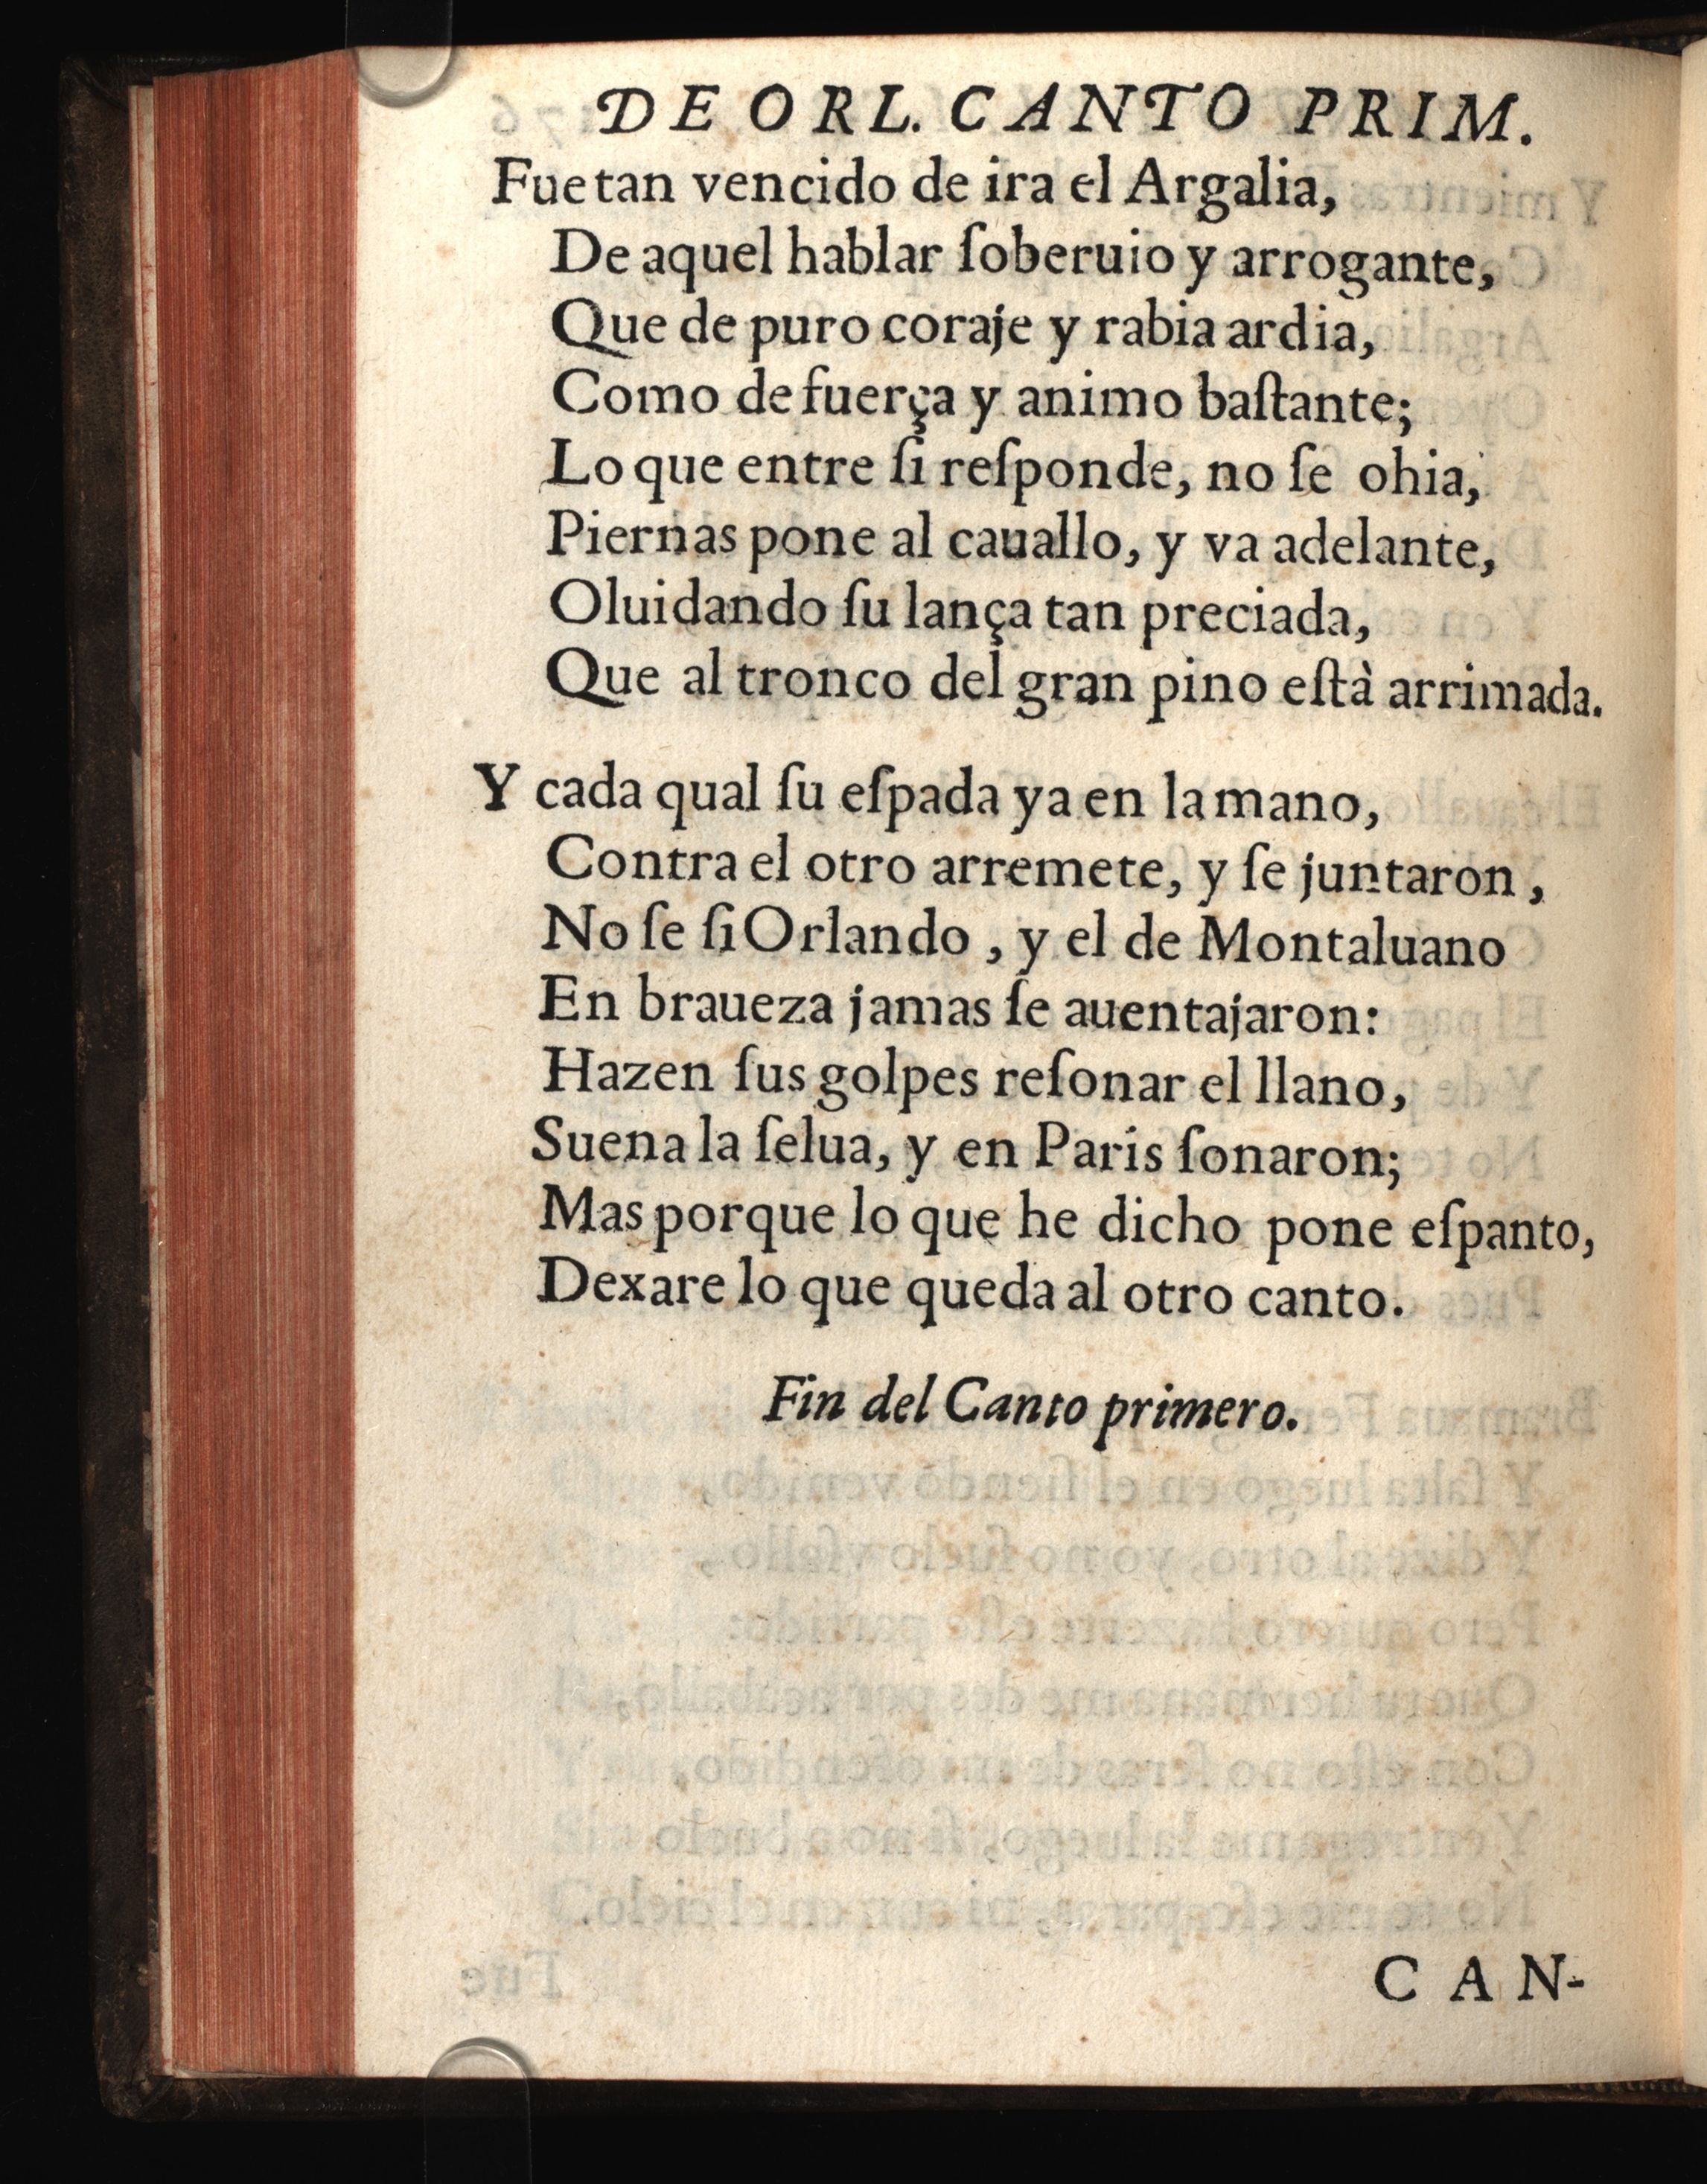 DE ORL. CANTO PRIM.
Fue tan vencido de ira el Argalia,
De aquel hablar ſoberuio y arrogante,
Que de puro coraje y rabia ardia,
Como de fuerça y animo baſtante;
Lo que entre ſi reſponde, no ſe ohia,
Piernas pone al cauallo, y va adelante,
Oluidando ſu lança tan preciada,
Que al tronco del gran pino eſtà arrimada.
Y cada qual ſu eſpada ya en la mano,
Contra el otro arremete, y ſe juntaron,
No ſe ſi Orlando, y el de Montaluano
En braueza jamas ſe auentajaron:
Hazen ſus golpes reſonar el llano,
Suena la ſelua, y en Paris ſonaron;
Mas porque lo que he dicho pone eſpanto,
Dexare lo que queda al otro canto.
Fin del Canto primero.
CAN-